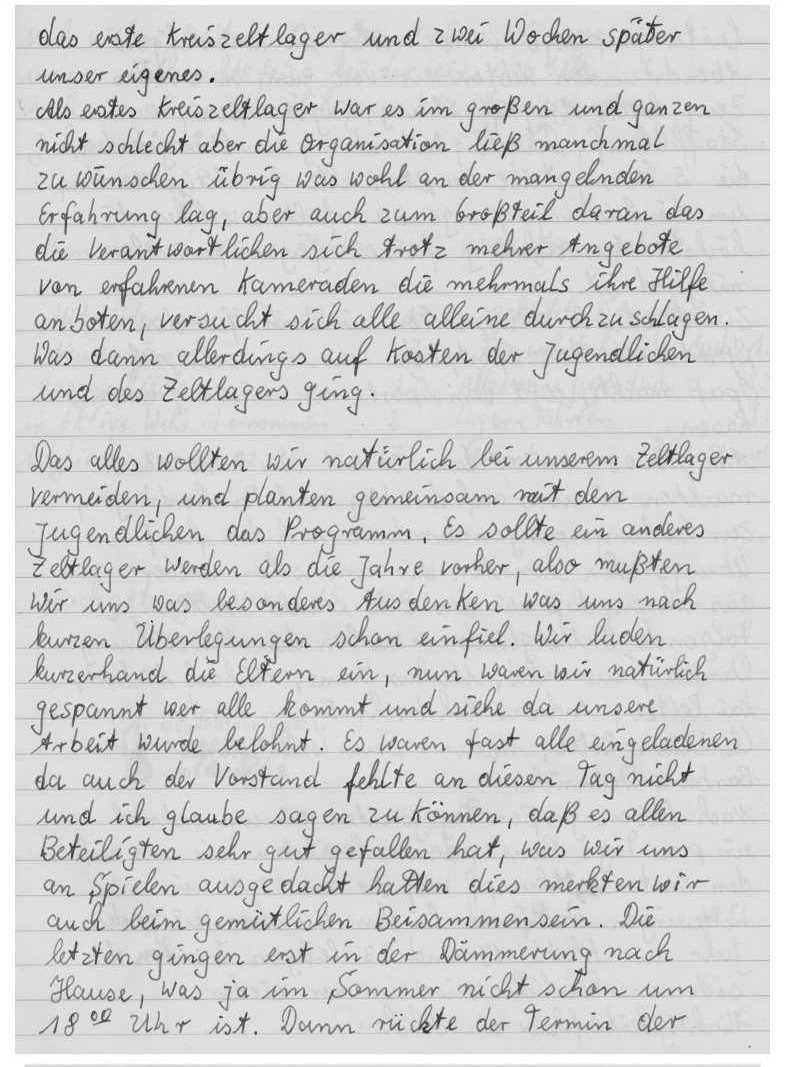 das erste Kreiszeltlager und zwei Wochen später
unser eigenes.
Als erstes Kreiszeltlager war es im großen und ganzen
nicht schlecht aber die Organisation ließ manchmal
zu wünschen übrig was wohl an der mangelnden
Erfahrung lag, aber auch zum Großteil daran das
die Verantwortlichen sich trotz mehrer Angebote
von erfahrenen Kameraden die mehrmals ihre Hilfe
anboten, versucht sich alle alleine durchzuschlagen.
Was dann allerdings auf Kosten der Jugendlichen
und des Zeltlagers ging.
Das alles wollten wir natürlich bei unserem Zeltlager
vermeiden, und planten gemeinsam mit den
Jugendlichen das Programm. Es sollte ein anderes
Zeltlager werden als die Jahre vorher, also mußten
wir uns was besonderes Ausdenken was uns nach
kurzen Überlegungen schon einfiel. Wir luden
kurzerhand die Eltern ein, nun waren wir natürlich
gespannt wer alle kommt und siehe da unsere
Arbeit wurde belohnt. Es waren fast alle eingeladenen
da auch der Vorstand fehlte an diesen Tag nicht
und ich glaube sagen zu können, daß es allen
Beteiligten sehr gut gefallen hat, was wir uns
an Spielen ausgedacht hatten dies merkten wir
auch beim gemütlichen Beisammensein. Die
letzten gingen erst in der Dämmerung nach
Hause, was ja im Sommer nicht schon um
18⁰⁰ Uhr ist. Dann rückte der Termin der